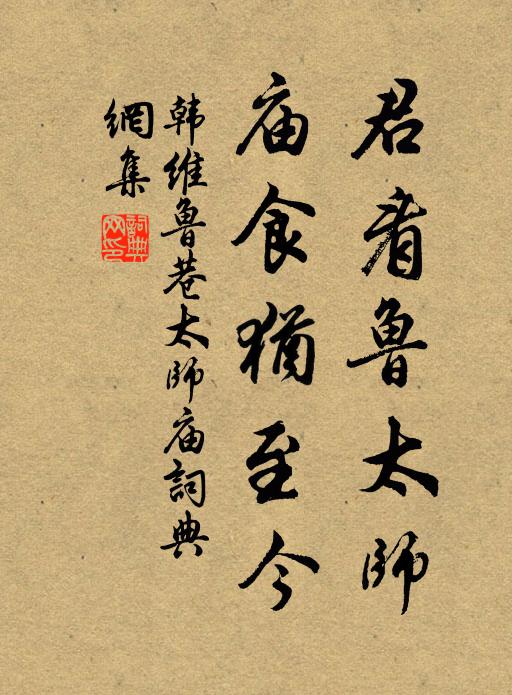 君看鲁太师
庙食犹至今
韩维鲁巷太师庙詞典
網集
詞典网印